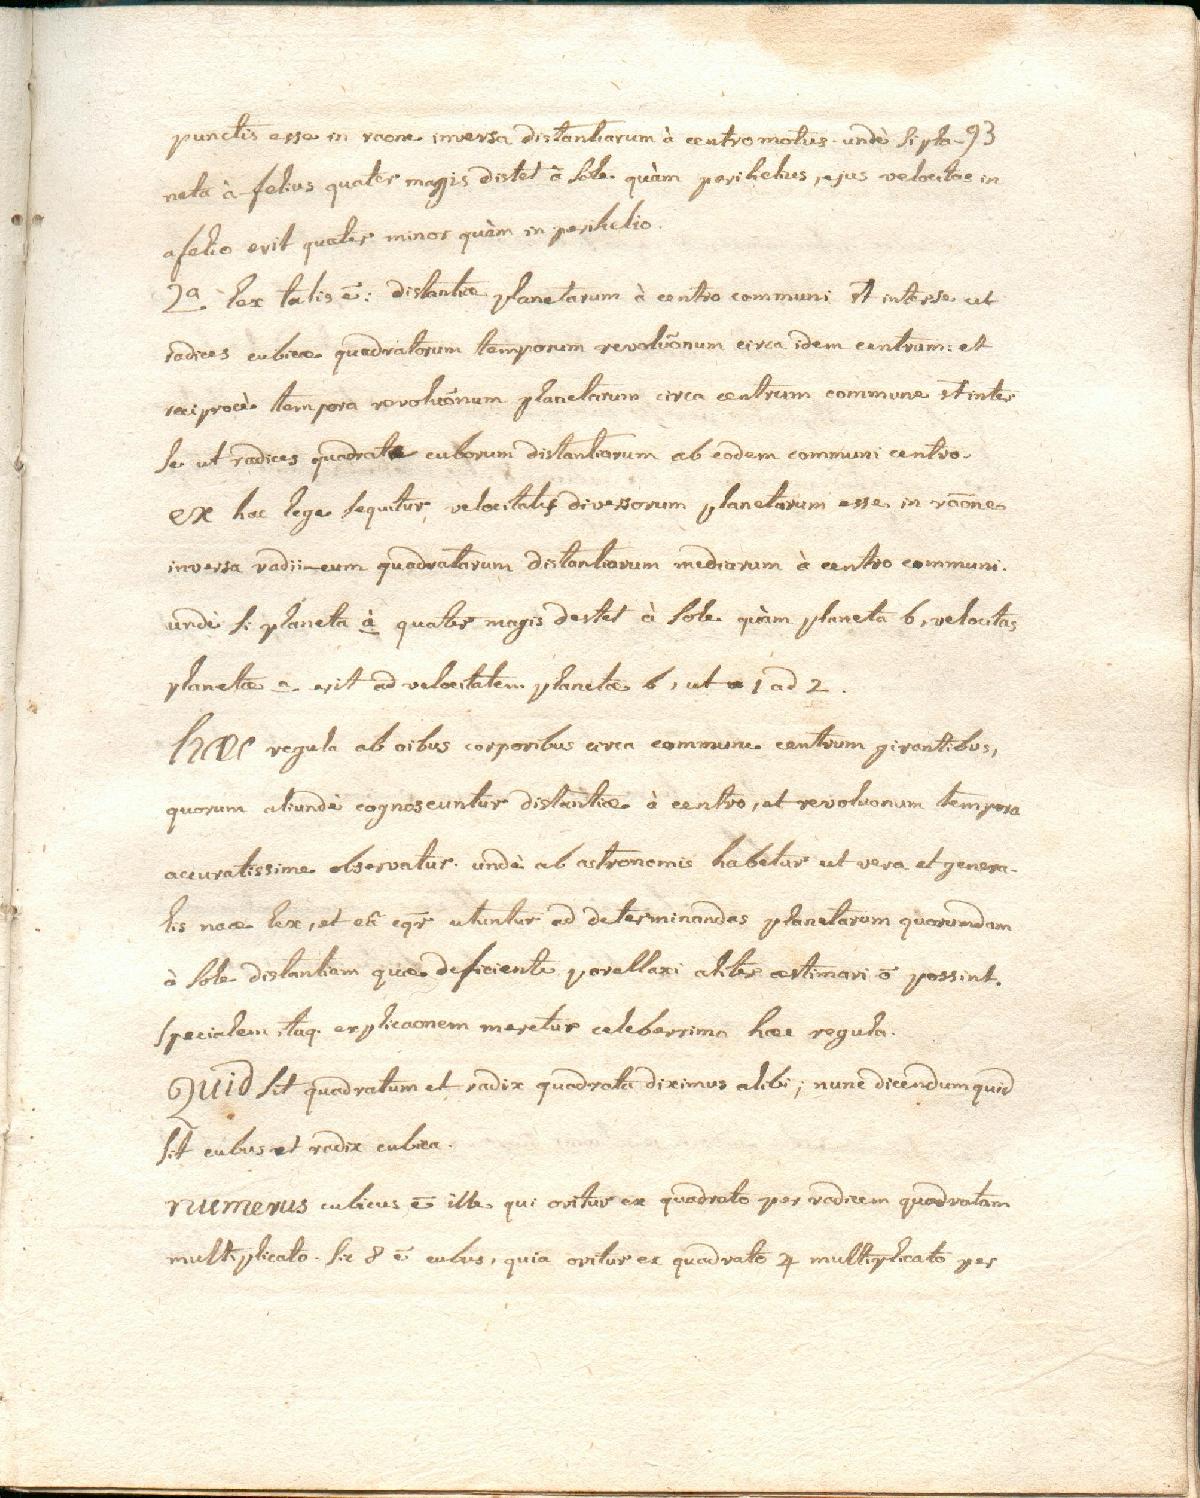 punctis esse in raone inversa distantiarum à centro motus. undè si pla- 93
neta à-felius quater magis distet à sole quàm perihelius, ejus velocitas in
afelio erit quater minor quàm in perihelio.
2a. lex talis ē: distantiæ planetarum à centro communi st̄ interse ut
radices cubicæ quadratorum temporum revoluōnum circa idem centrum: et
reciprocè tempora revoluōnum planetarum circa centrum commune st̄ inter
se ut radices quadratæ cuborum distantiarum ab eodem communi centro.
ex hac lege sequitur, velocitates diversorum planetarum esse in raōne
inversa radicum quadratarum distantiarum mediarum à centro communi.
undè si planeta a quater magis destet à sole quàm planeta b, velocitas
planetæ a erit ad velocitatem planetæ b, ut 1 ad 2.
hæc regula ab oibus corporibus circa commune centrum girantibus,
quorum aliundè cognoscuntur distantiæ à centro, et revoluonum tempora
accuratissime observatur. undè ab astronomis habetur ut vera et genera-
lis naæ lex, et eā eqr̄ utuntur ad determinandas planetarum quorumdam
à sole distantiam quæ deficiente parellaxi aliter æstimari ō possint.
specialem itaq. explicaonem meretur celeberrima hæc regula.
Quid sit quadratum et radix quadrata diximus alibi; nunc dicendum quid
sit cubus et radix cubica.
numerus cubicus ē ille qui oritur ex quadrato per radicem quadratam
multiplicato. sic 8 ē cubus, quia oritur ex quadrato 4 multiplicato per